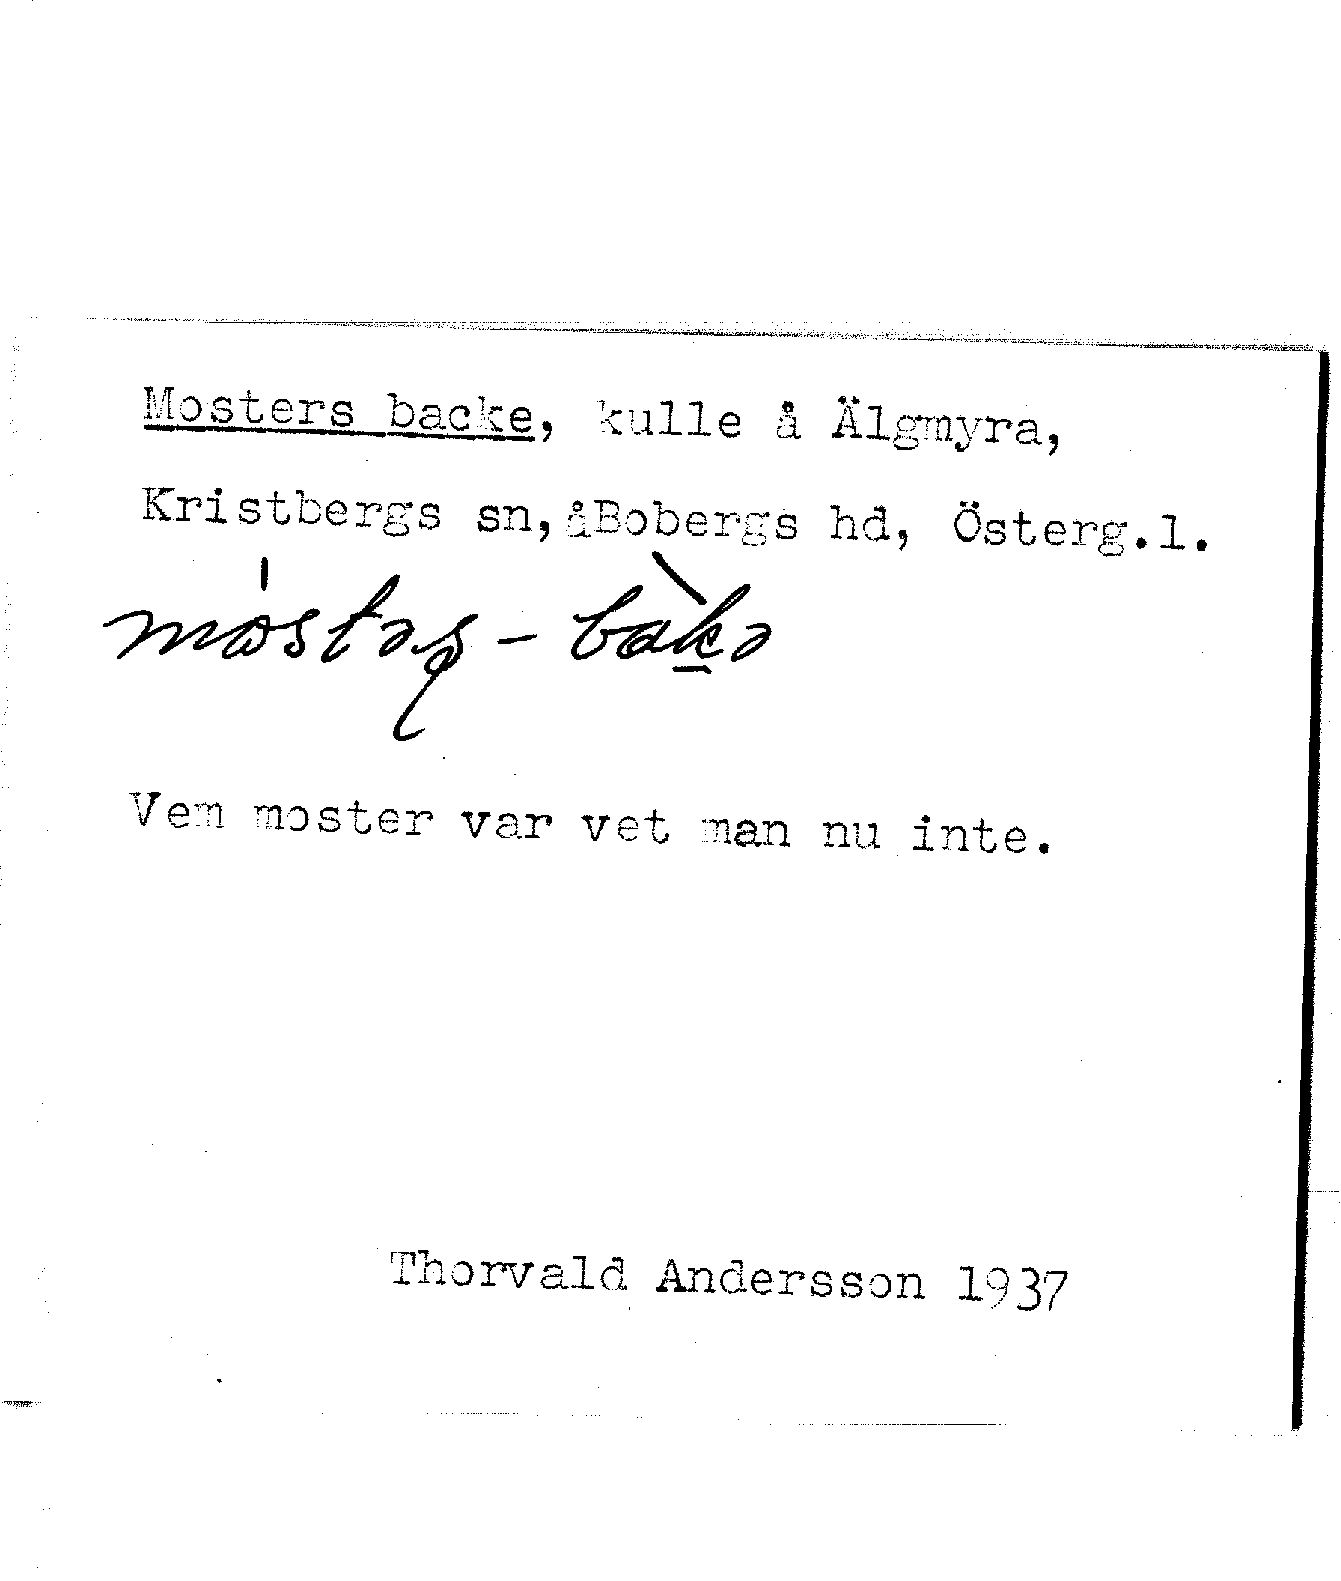 Mosters backe, kulle å Älgmyra,
Kristbergs sn, åBobergs hd, Österg.l.
Vem moster var vet man nu inte.
Thorvald Andersson 1937